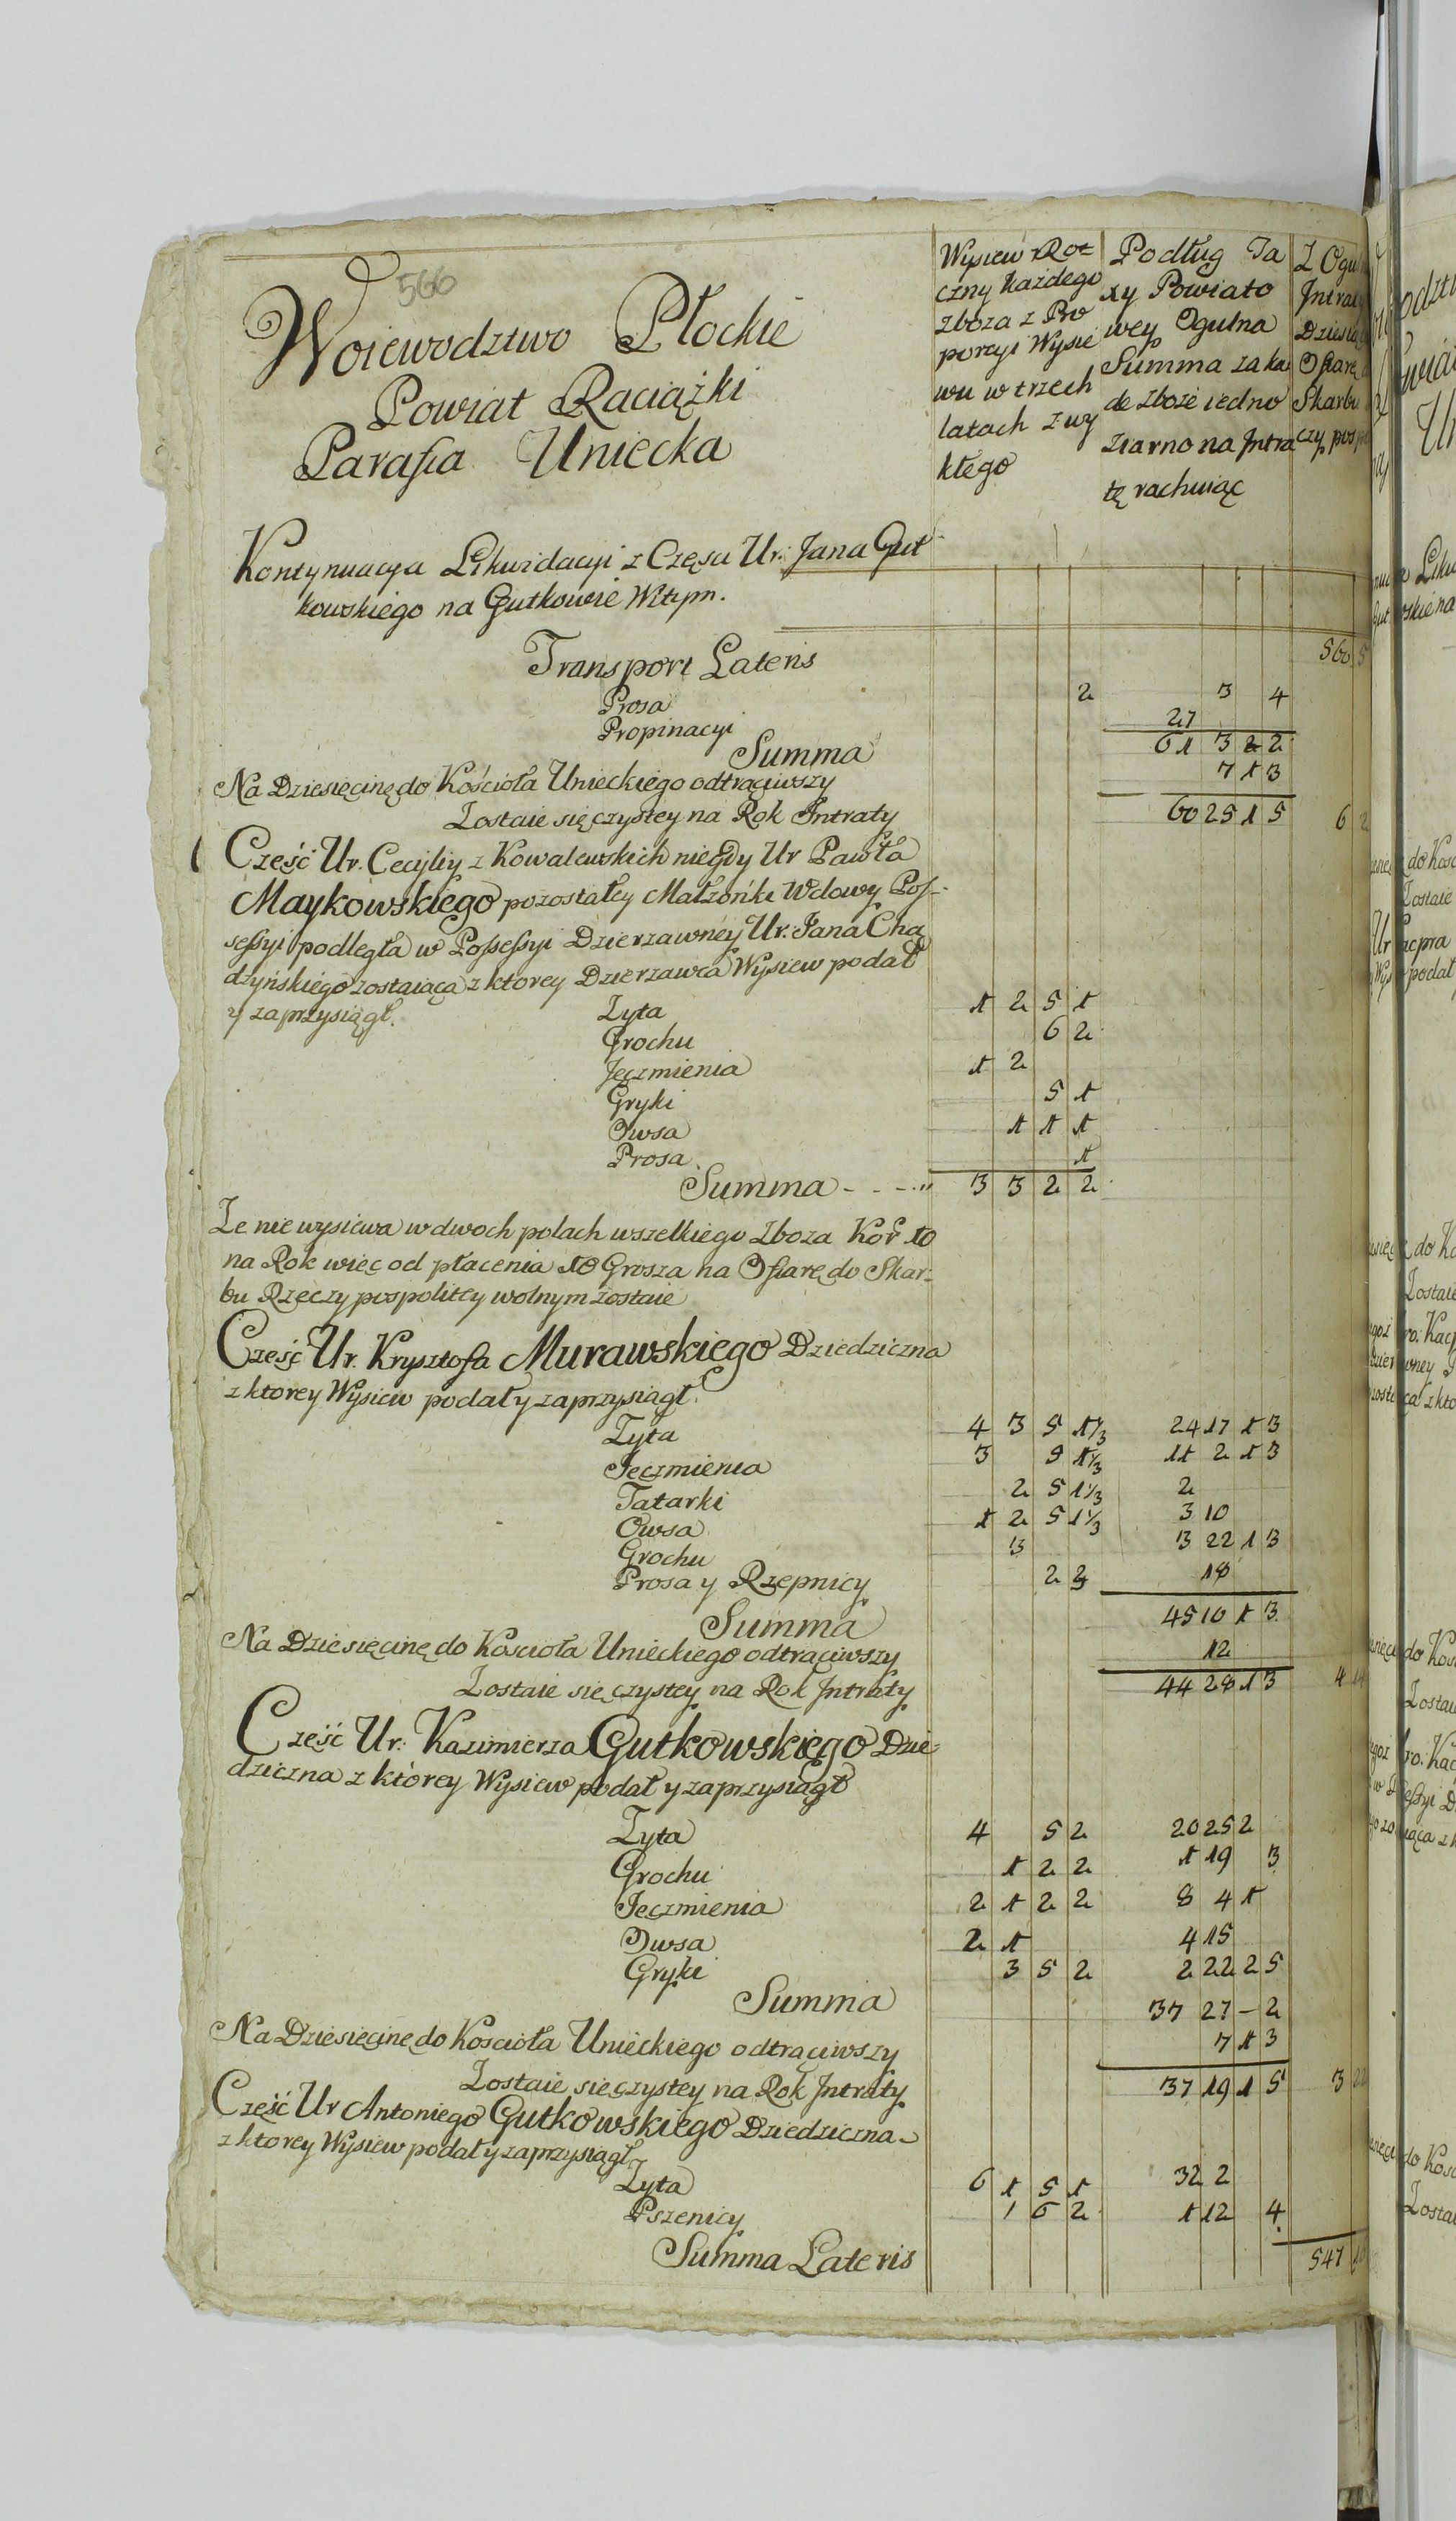 566
Woiewodztwo Płockie
Powiat Raciążki
Parafia Uniecka
Wysiew Ro=
czny każdego
zboza z Pro
porcyi Wysie
wu w trzech
latach zwy
kłego
Podług Ta
xy Powiato
wey Ogulna
Summa za ka
de zboże iedno
ziarno na Intra
tę rachuiąc
Z Ogu
Intrat
Dziesią
Ofiarę
Skarbu
czy posp
Kontynuacya Likwidacyi z Częsci Ur: Jana Gut
kowskiego na Gutkowie Wtzpn.
Transport Lateris 560 5
Prosa 2 3 4
Propinacyi 27
Summa 61 3 2 2
Na Dziesięcinę do Kościoła Unieckiego odtrąciwszy 7 1 3
Zostaie się czystey na Rok Intraty 60 25 1 5 6 2
Część Ur. Cecyliy z Kowalewskich niegdy Ur Pawła
Maykowskiego pozostałey Małżonki Wdowy Pos=
sessyi podległa w Possessyi Dzierzawney Ur. Jana Cha
dzyńskiego zostaiąca z ktorey Dzierzawca Wysiew podał
y zaprzysiągł.
Zyta 1 2 5 1
Grochu 6 2
Jęczmienia 1 2
Gryki 5 1
Owsa 1 1 1
Prosa 1
Summa - - - 3 3 2 2
Ze nie wysiewa w dwoch polach wszelkiego zboza Kor 10
na Rok więc od płacenia 10 Grosza na Ofiarę do Skar=
bu Rzeczy pospolitey wolnym zostaie
Część Ur. Krysztofa Murawskiego Dziedziczna
z ktorey Wysiew podał y zaprzysiągł.
Zyta 4 3 5 1 1/3 24 17 1 3
Jęczmienia 3 5 1 1/3 11 2 1 3
Tatarki 2 5 1 1/3 2
Owsa 1 2 5 1 1/3 3 10
Grochu 3 3 22 1 3
Prosa y Rzepnicy 2 2 18
Summa 45 10 1 3
Na Dziesięcinę do Kościoła Unieckiego odtrąciwszy 12
Zostaie się czystey na Rok Intraty 44 28 1 3 4 14
Część Ur: Kazimierza Gutkowskiego Dzie=
dziczna z ktorey Wysiew podał y zaprzysiągł
Zyta 4 5 2 20 25 2
Grochu 1 2 2 1 19 3
Jęczmienia 2 1 2 2 8 4 1
Owsa 2 1 4 15
Gryki 3 5 2 2 22 2 5
Summa 37 27 - 2
Na Dziesięcinę do Kościoła Unieckiego odtrąciwszy 7 1 3
Zostaie się czystey na Rok Intraty 37 19 1 5 3 22
Część Ur Antoniego Gutkowskiego Dziedziczna
z ktorey Wysiew podał y zaprzysiągł
Zyta 6 1 5 1 32 2
Pszenicy 1 6 2 1 12 4
Summa Lateris 547